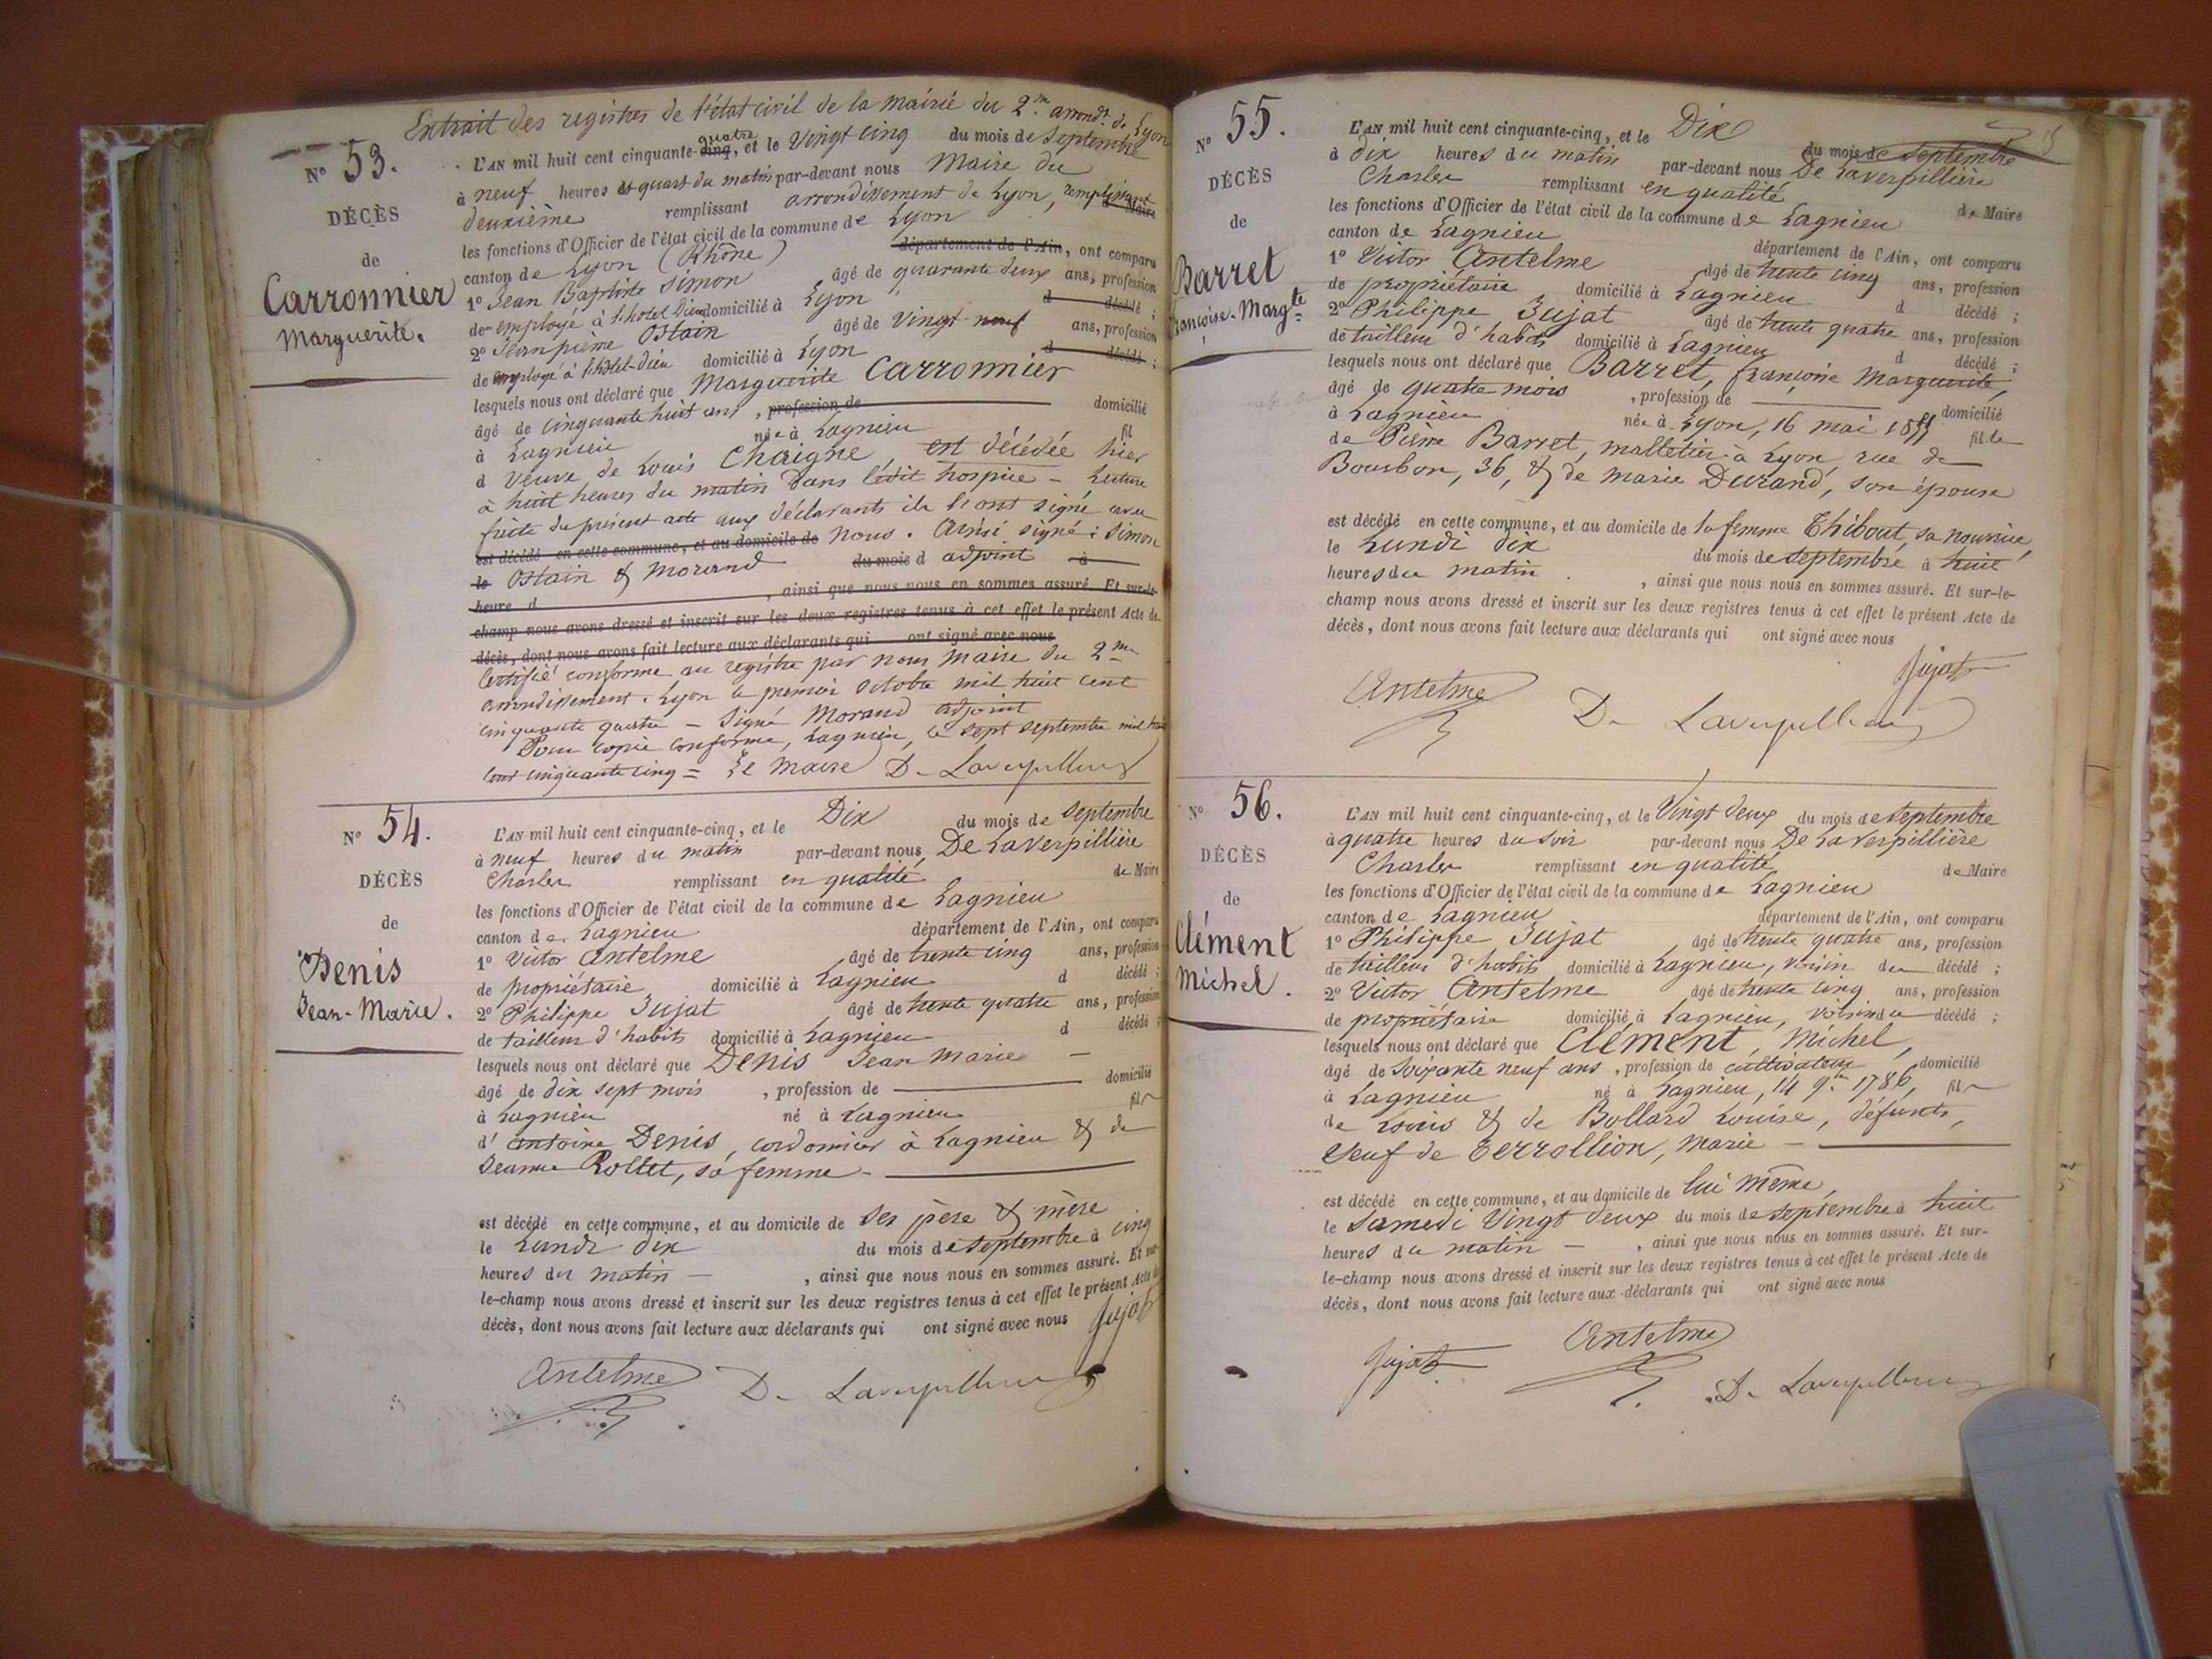 Extrait des registres de l'état civil de la mairie du 2me arrondt. de Lyon
N° 53.
DÉCÈS
de
Carronnier
Marguerite.
L'AN mil huit cent cinquante-cinq quatre, et le Vingt cinq du mois de Septembre
à neuf heures et quart du matin par-devant nous Maire du
deuxième remplissant arrondissement de Lyon, remplissant Maire
les fonctions d'Officier de l'état civil de la commune de Lyon
canton de Lyon (Rhône) département de l'Ain, ont comparu
1° Jean Baptiste Simon âgé de quarante deux ans, profession
de employé à l'hotel Dieu domicilié à Lyon d décédé ;
2° Jean pierre Ostain âgé de Vingt neuf ans, profession
de employé à l'hôtel-dieu domicilié à Lyon d décédé ;
lesquels nous ont déclaré que Marguerite Carronnier
âgé de cinquante huit ans, profession de domicilié
à Lagnieu née à Lagnieu fil
d Veuve de Louis Chaigne, est décédée hier
à huit heures du matin dans ledit hospice - Lecture
faite du présent acte aux déclarants ils l'ont signé avec
est décédé en cette commune, et au domicile de nous. Ainsi signé : Simon
le Ostain & Morand du mois d adjoint à
heure d , ainsi que nous nous en sommes assuré. Et sur-le-
champ nous avons dressé et inscrit sur les deux registres tenus à cet effet le présent Acte de
décès, dont nous avons fait lecture aux déclarants qui ont signé avec nous
Certifié conforme au registre par nous Maire du 2me
arrondissement. Lyon le premier Octobre mil huit cent
cinquante quatre - Signé Morand adjoint
Pour copie conforme, Lagnieu, le sept septembre mil huit
cent cinquante cinq = Le Maire D. Laverpilliere
N° 54.
DÉCÈS
de
Denis
Jean-Marie.
L'AN mil huit cent cinquante-cinq, et le Dix du mois de septembre
à neuf heures du matin par-devant nous De Laverpillière
Charles remplissant en qualité de Maire
les fonctions d'Officier de l'état civil de la commune de Lagnieu
canton de Lagnieu département de l'Ain, ont comparu
1° Victor Antelme âgé de trente cinq ans, profession
de propriétaire domicilié à Lagnieu d décédé ;
2° Philippe Jujat âgé de trente quatre ans, profession
de tailleur d'habits domicilié à Lagnieu d décédé ;
lesquels nous ont déclaré que Denis Jean Marie
âgé de dix sept mois, profession de domicilié
à Lagnieu né à Lagnieu fils
d' Antoine Denis, cordonnier à Lagnieu & de
Jeanne Rollet, sa femme
est décédé en cette commune, et au domicile de ses père & mère
le Lundi dix du mois de septembre à cinq
heures du matin , ainsi que nous nous en sommes assuré. Et sur-
le-champ nous avons dressé et inscrit sur les deux registres tenus à cet effet le présent Acte de
décès, dont nous avons fait lecture aux déclarants qui ont signé avec nous Jujat
Antelme D. Laverpilliere
N° 55.
DÉCÈS
de
Barret
Françoise-Margte
L'AN mil huit cent cinquante-cinq, et le Dix du mois de septembre
à dix heures du matin par-devant nous De Laverpillière
Charles remplissant en qualité de Maire
les fonctions d'Officier de l'état civil de la commune de Lagnieu
canton de Lagnieu département de l'Ain, ont comparu
1° Victor Antelme âgé de trente cinq ans, profession
de propriétaire domicilié à Lagnieu d décédé ;
2° Philippe Jujat âgé de trente quatre ans, profession
de tailleur d'habits domicilié à Lagnieu d décédé ;
lesquels nous ont déclaré que Barret, françoise Marguerite,
âgé de quatre mois, profession de domicilié
à Lagnieu née à Lyon, 16 mai 1855 fille
de Pierre Barret, malletier à Lyon, rue de
Bourbon, 36, & de Marie Durand, son épouse
est décédé en cette commune, et au domicile de la femme Thibout, sa nourrice,
le Lundi dix du mois de septembre à huit
heures du matin , ainsi que nous nous en sommes assuré. Et sur-le-
champ nous avons dressé et inscrit sur les deux registres tenus à cet effet le présent Acte de
décès, dont nous avons fait lecture aux déclarants qui ont signé avec nous
Jujat
Antelme D. Laverpilliere
N° 56.
DÉCÈS
de
Clément
Michel.
L'AN mil huit cent cinquante-cinq, et le Vingt deux du mois de septembre
à quatre heures du soir par-devant nous De Laverpillière
Charles remplissant en qualité de Maire
les fonctions d'Officier de l'état civil de la commune de Lagnieu
canton de Lagnieu département de l'Ain, ont comparu
1° Philippe Jujat âgé de trente quatre ans, profession
de tailleur d'habits domicilié à Lagnieu, voisin du décédé ;
2° Victor Antelme âgé de trente cinq ans, profession
de propriétaire domicilié à Lagnieu, voisin du décédé ;
lesquels nous ont déclaré que Clément, Michel,
âgé de soixante neuf ans, profession de cultivateur domicilié
à Lagnieu né à Lagnieu, 14 9bre 1786, fils
de Louis & de Bollard Louise, défunts,
Veuf de Terrollion, Marie
est décédé en cette commune, et au domicile de lui même,
le samedi Vingt deux du mois de septembre à huit
heures du matin , ainsi que nous nous en sommes assuré. Et sur-
le-champ nous avons dressé et inscrit sur les deux registres tenus à cet effet le présent Acte de
décès, dont nous avons fait lecture aux déclarants qui ont signé avec nous
Jujat Antelme
D. Laverpilliere